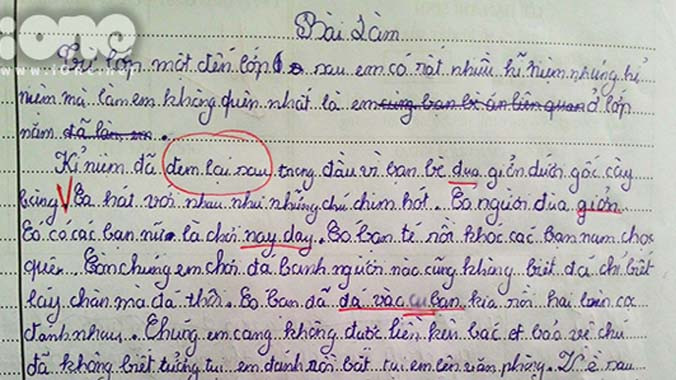 iOne
www.iONe.net
Bài Làm
Từ lớp một đến lớp sau em có rất nhiều kỉ niệm nhưng kỉ
niệm mà làm em không quên nhất là em cùng bạn bè ăn liên quan ở lớp
năm đã làm em.
Kỉ niệm đã đem lại sau trong đầu vì bạn bè đụa giởn dưới gốc cây
bàng Ca hát với nhau như những chú chim hót. Có người đùa giởn
Có có các bạn nữ là chơi nay day. Có bạn té rồi khóc các bạn nam chọc
quê. Còn chúng em chơi đá banh người nào cũng không biết đá chỉ biết
lấy chân mà đá thôi. Có bạn đã đá vào cu bạn kia rồi hai bạn
đánh nhau. Chúng em can không được liền kên bác bảo vệ chú
đã không biết tưởng tụi em đánh rồi bắt tụi em lên văn phòng. sau